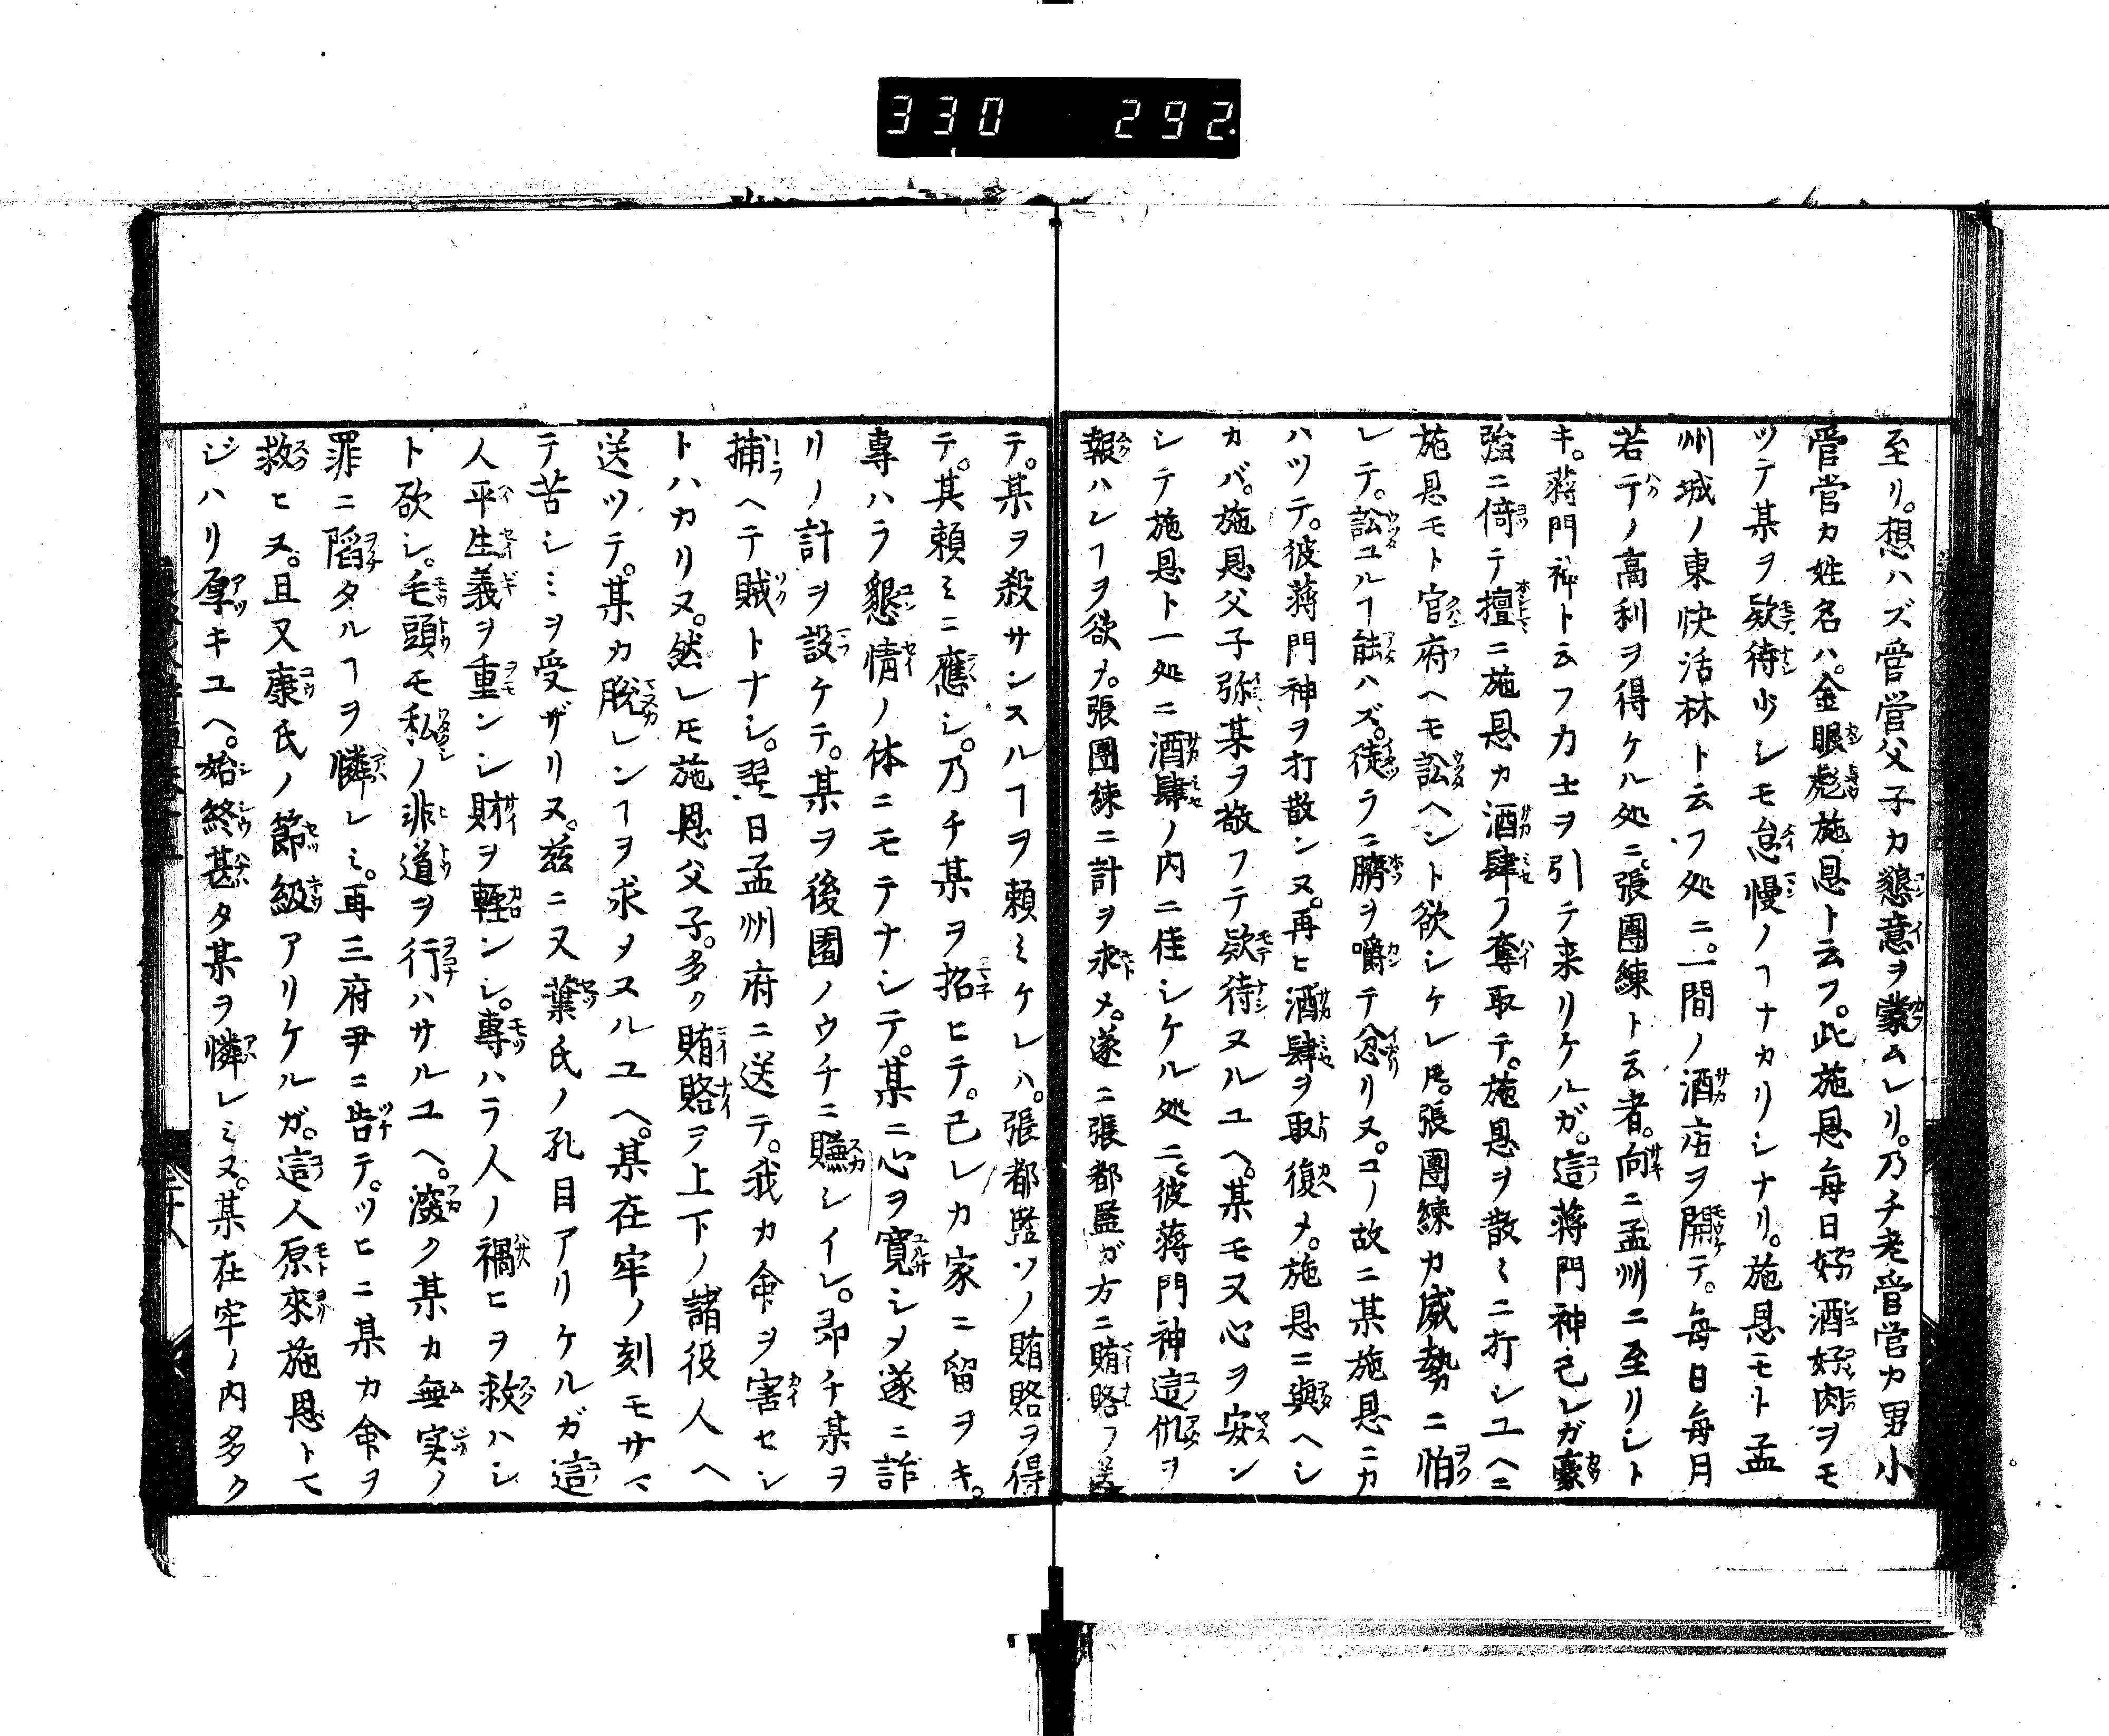 330 292.
至リ。想ハズ管営父子カ懇意ヲ蒙ムレリ。乃チ老管営カ男小
管営カ姓名ハ。金眼彪施恩ト云フ。此施恩毎日好酒好肉ヲモ
ツテ某ヲ欵待少シモ怠慢ノヿナカリシナリ。施恩モト孟
州城ノ東快活林ト云フ処ニ。一間ノ酒店ヲ開テ。毎日毎月
若干ノ高利ヲ得ケル処ニ。張團練ト云者。向ニ孟州ニ至リシト
キ。蒋門神ト云フ力士ヲ引テ来リケルガ。這蒋門神己レガ豪
強ニ倚テ擅ニ施恩カ酒肆ヲ奪取テ。施恩ヲ散〻ニ打シユヘニ
施恩モト官府ヘモ訟ヘント欲シケレ𪜈。張團練カ威勢ニ怕
レテ。訟ユルヿ能ハズ。徒ラニ臍ヲ嚼テ忍リヌ。コノ故ニ某施恩ニカ
ハツテ。彼蒋門神ヲ打散ンヌ。再ヒ酒肆ヲ取復メ。施恩ニ與ヘシ
カバ。施恩父子弥某ヲ敬フテ欵待ヌルユヘ。某モ又心ヲ安ン
シテ施恩ト一処ニ酒肆ノ内ニ住シケル処ニ。彼蒋門神這仇ヲ
報ハンヿヲ欲メ。張團練ニ計ヲ求メ。遂ニ張都監ガ方ニ賄賂ヲ送
テ。某ヲ殺サンスルヿヲ頼ミケレハ。張都監ソノ賄賂ヲ得
テ。其頼ミニ應シ。乃チ某ヲ招ヒテ。己レカ家ニ留ヲキ。
專ハラ懇情ノ体ニモテナシテ。某ニ心ヲ寛シメ遂ニ詐
リノ計ヲ設ケテ。某ヲ後園ノウチニ賺シイレ。即チ某ヲ
捕ヘテ賊トナシ。翌日孟州府ニ送テ。我カ命ヲ害セン
トハカリヌ。然レ𪜈施恩父子。多ク賄賂ヲ上下ノ諸役人ヘ
送ツテ。某カ脱レンヿヲ求メヌルユヘ。某在牢ノ刻モサマ
テ苦シミヲ受ザリヌ。茲ニ又葉氏ノ孔目アリケルガ這
人平生義ヲ重ンシ財ヲ輕ンシ。專ハラ人ノ禍ヒヲ救ハン
ト欲シ。毛頭モ私ノ非道ヲ行ハサルユヘ。深ク某カ無実ノ
罪ニ陷タルヿヲ憐レミ。再三府尹ニ告テ。ツヒニ某カ命ヲ
救ヒヌ。且又康氏ノ節級アリケルガ。這人原來施恩トマ
ジハリ厚キユヘ。始終甚タ某ヲ憐レミヌ。某在牢ノ内多ク